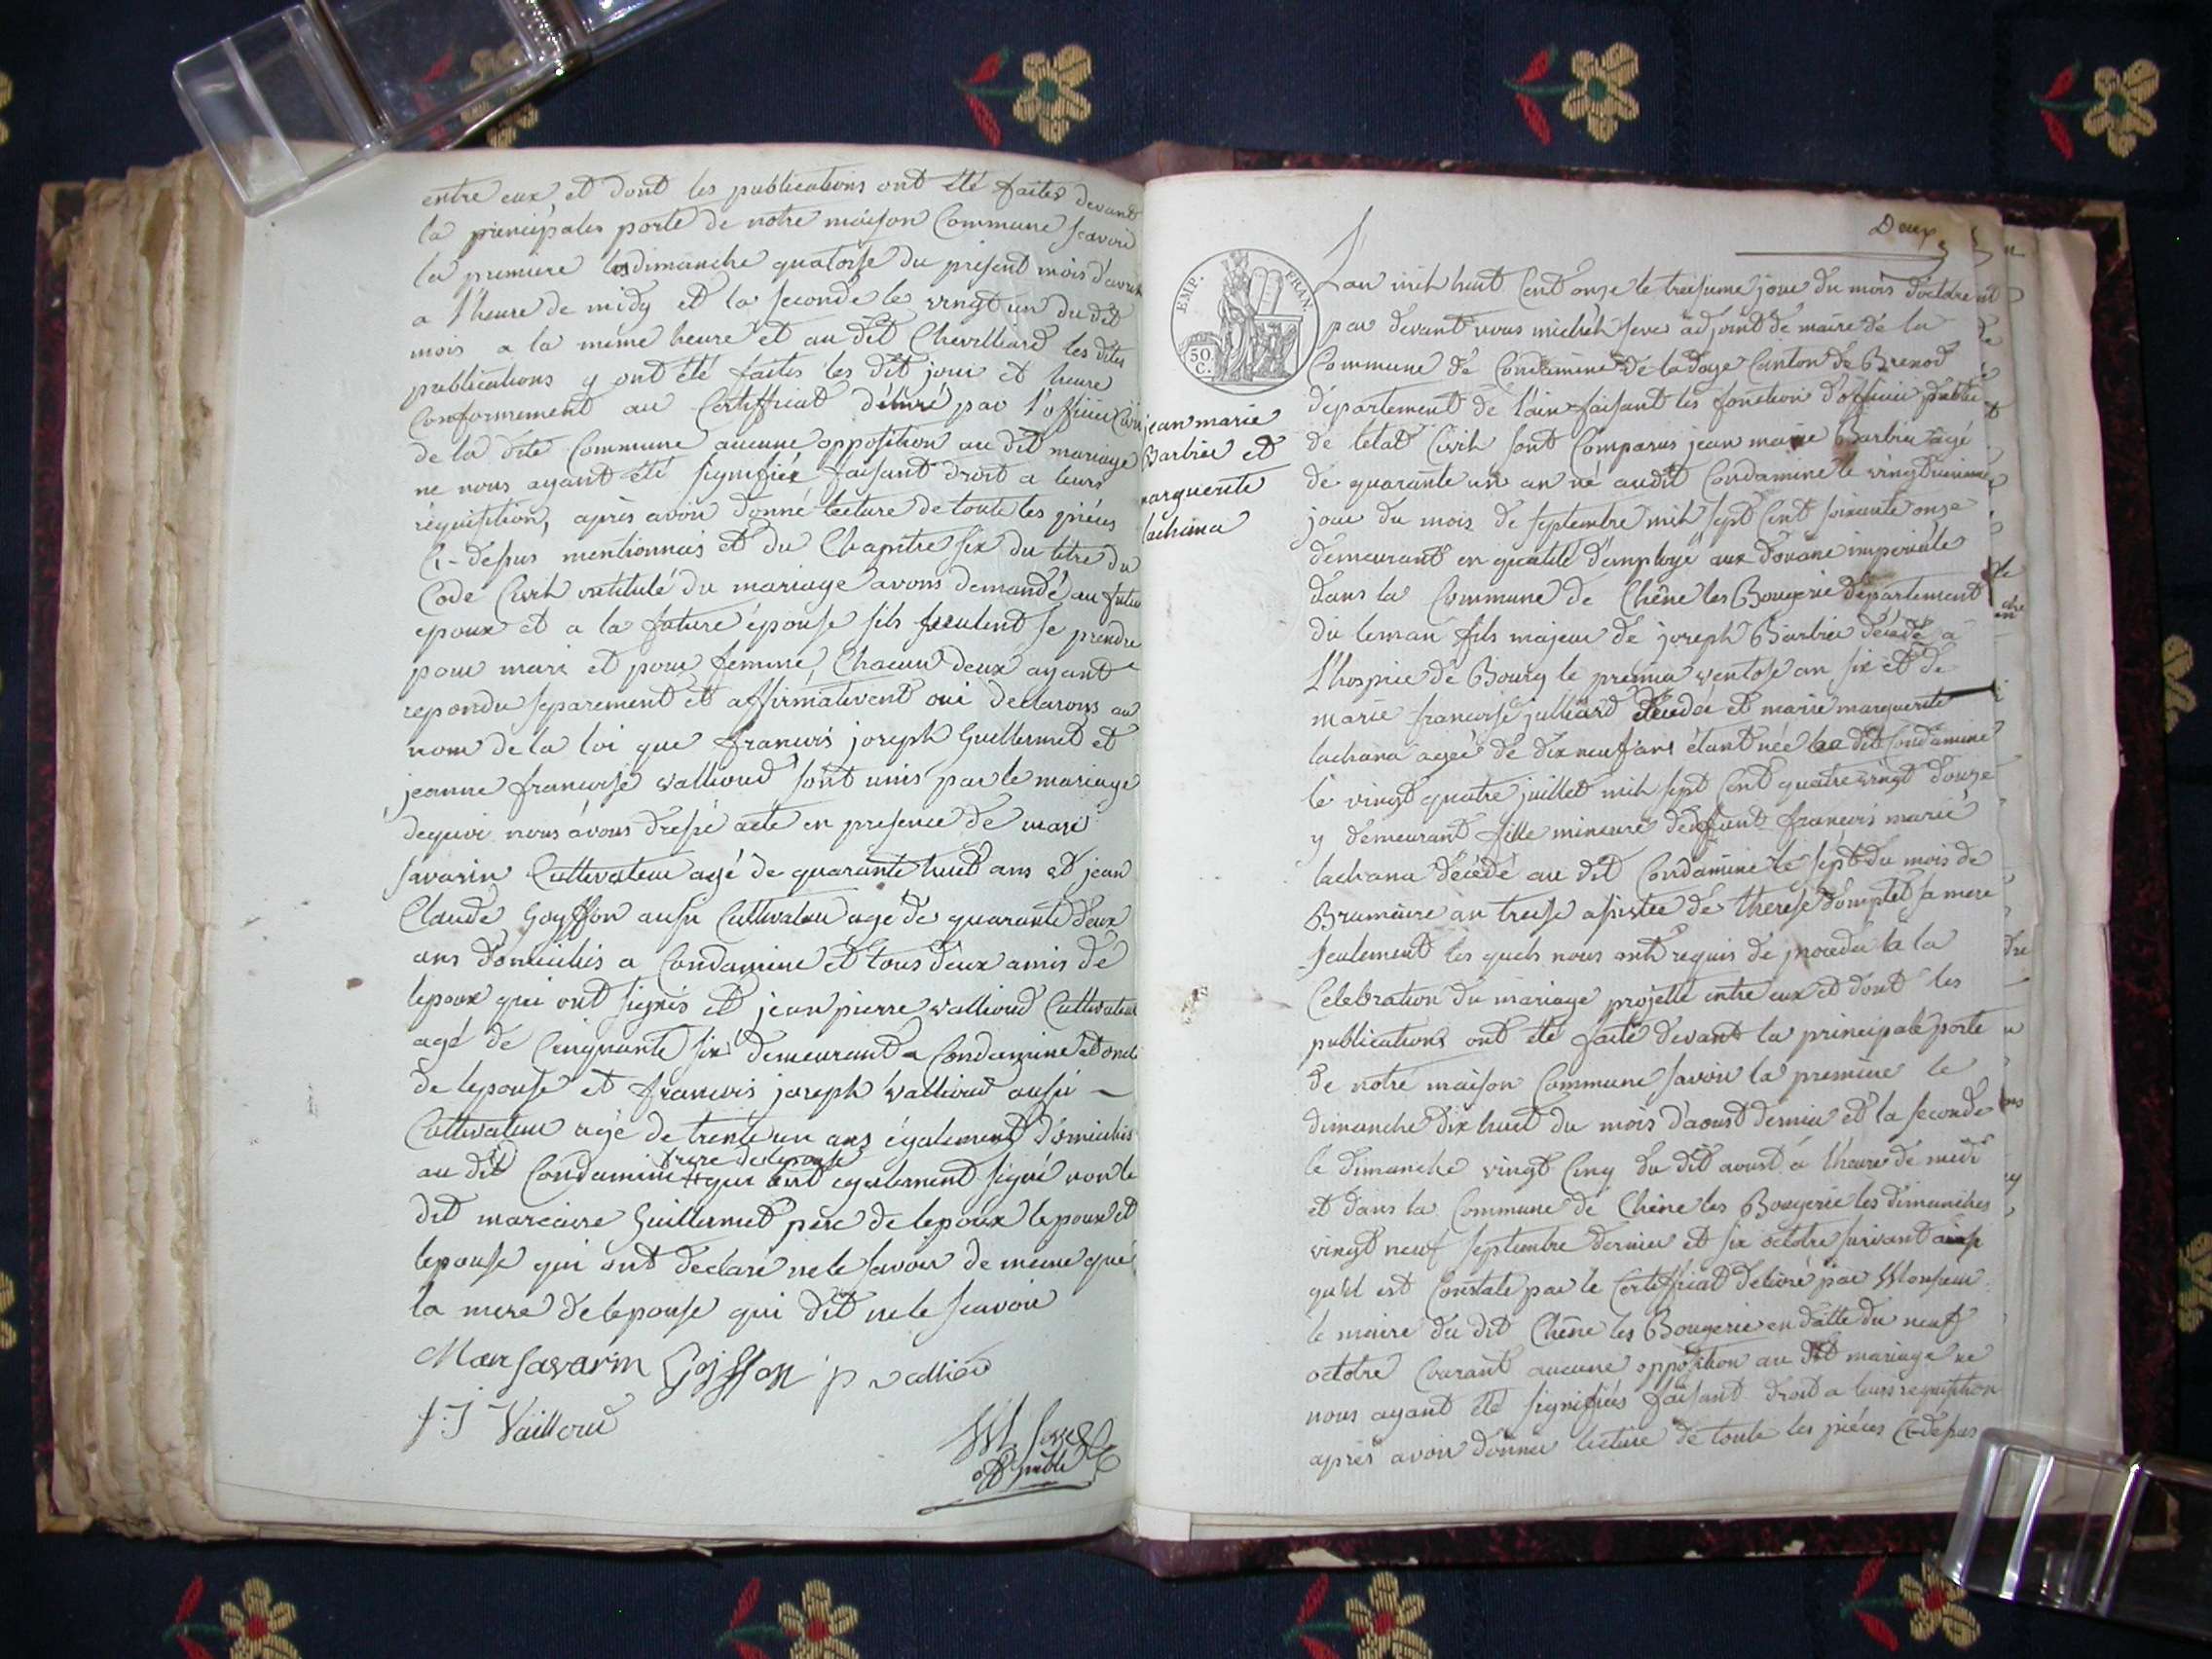 entre eux, et dont les publications ont été faites devant
la principales porte de notre maison Commune scavoir
la premiere le dimanche quatorse du present mois d'avril
a l'heure de midy et la seconde le vingt un du dit
mois a la même heure et au dit Chevilliard les dites
publications y ont été faites les dit jour et heure
Conformement au Certifficat délivré par l'officier Civil
de la dite Commune aucune opposition au dit mariage
ne nous ayant été signifiée faisant droit a leurs
réquisition, après avoir donné lecture de toute les pièces
Ci-dessus mentionnés et du Chapitre six du titre du
Code Civil intitulé du mariage avons demandé au futur
epoux et a la future épouse sils veulent se prendre
pour mari et pour femme, Chacun deux ayant
repondu separement et affirmativent oui declarons au
nom de la loi que francois joseph Guillermet et
jeanne francoise vallioud sont unis par le mariage
dequoi nous avons dressé acte en presence de marc
savarin Cultivateur agé de quarante huit ans et jean
Claude Goyffon aussi Cultivateur agé de quarante deux
ans domiciliés a Condamine et tous deux amis de
lepoux qui ont signés et jean pierre vallioud Cultivateur
agé de Cinquante six demeurant a Condamine et oncle
de lepouse et francois joseph vallioud aussi
Cultivateur agé de trente un ans également domiciliés
frere de lepouse
au dit Condamine qui ont egalement signé non le
dit marcaire Guillermet père de lepoux lepoux et
lepouse qui ont declaré ne le savoir de meme que
la mere de lepouse qui dit ne le scavoir
Marc Savarin Goyffon p vallioud
f. J Vailloud
M. Seve
off. public
Deux
EMP. FRAN.
50 C.
jean marie
Barbier et
marguerite
lachana
Lan mil huit Cent onze le treisieme jour du mois doctobre
par devant nous michel seve adjoint de maire de la
Commune de Condamine de la doye Canton de Brenod
département de l'ain faisant les fonction d'officier public
de letat Civil sont Comparus jean marie Barbier agé
de quarante un an né audit Condamine le vingt
jour du mois de septembre mil sept Cent soixante onze
demeurant en qualité d'employé aux douane imperiale
dans la Commune de Chêne les Bougerie département
du leman fils majeur de joseph Barbier décédé a
l'hospice de Bourg le premier ventose an six et de
marie francoise julliard décédée et marie marguerite
lachana agée de dix neuf ans étant née au dit Condamine
le vingt quatre juillet mil sept Cent quatre vingt douze
y demeurant fille mineure de francois marie
lachana décédé au dit Condamine le sept du mois de
Brumaire an treise assistée de therese domptet sa mere
seulement les quels nous ont requis de proceder a la
Celebration du mariage projetté entre eux et dont les
publications ont été faite devant la principale porte
de notre maison Commune savoir la premiere le
dimanche dix huit du mois d'aoust dernier et la seconde
le dimanche vingt Cinq du dit aoust a l'heure de midi
et dans la Commune de Chêne les Bougerie les dimanches
vingt neuf septembre dernier et six octobre suivant ainsi
qu'il est Constaté par le Certifficat délivré par Monsieur
le maire du dit Chêne les Bougerie en datte du neuf
octobre Courant aucune opposition au dit mariage ne
nous ayant été signifiées faisant droit a leurs requisition
apres avoir donner lecture de toute les pièces Ci-dessus